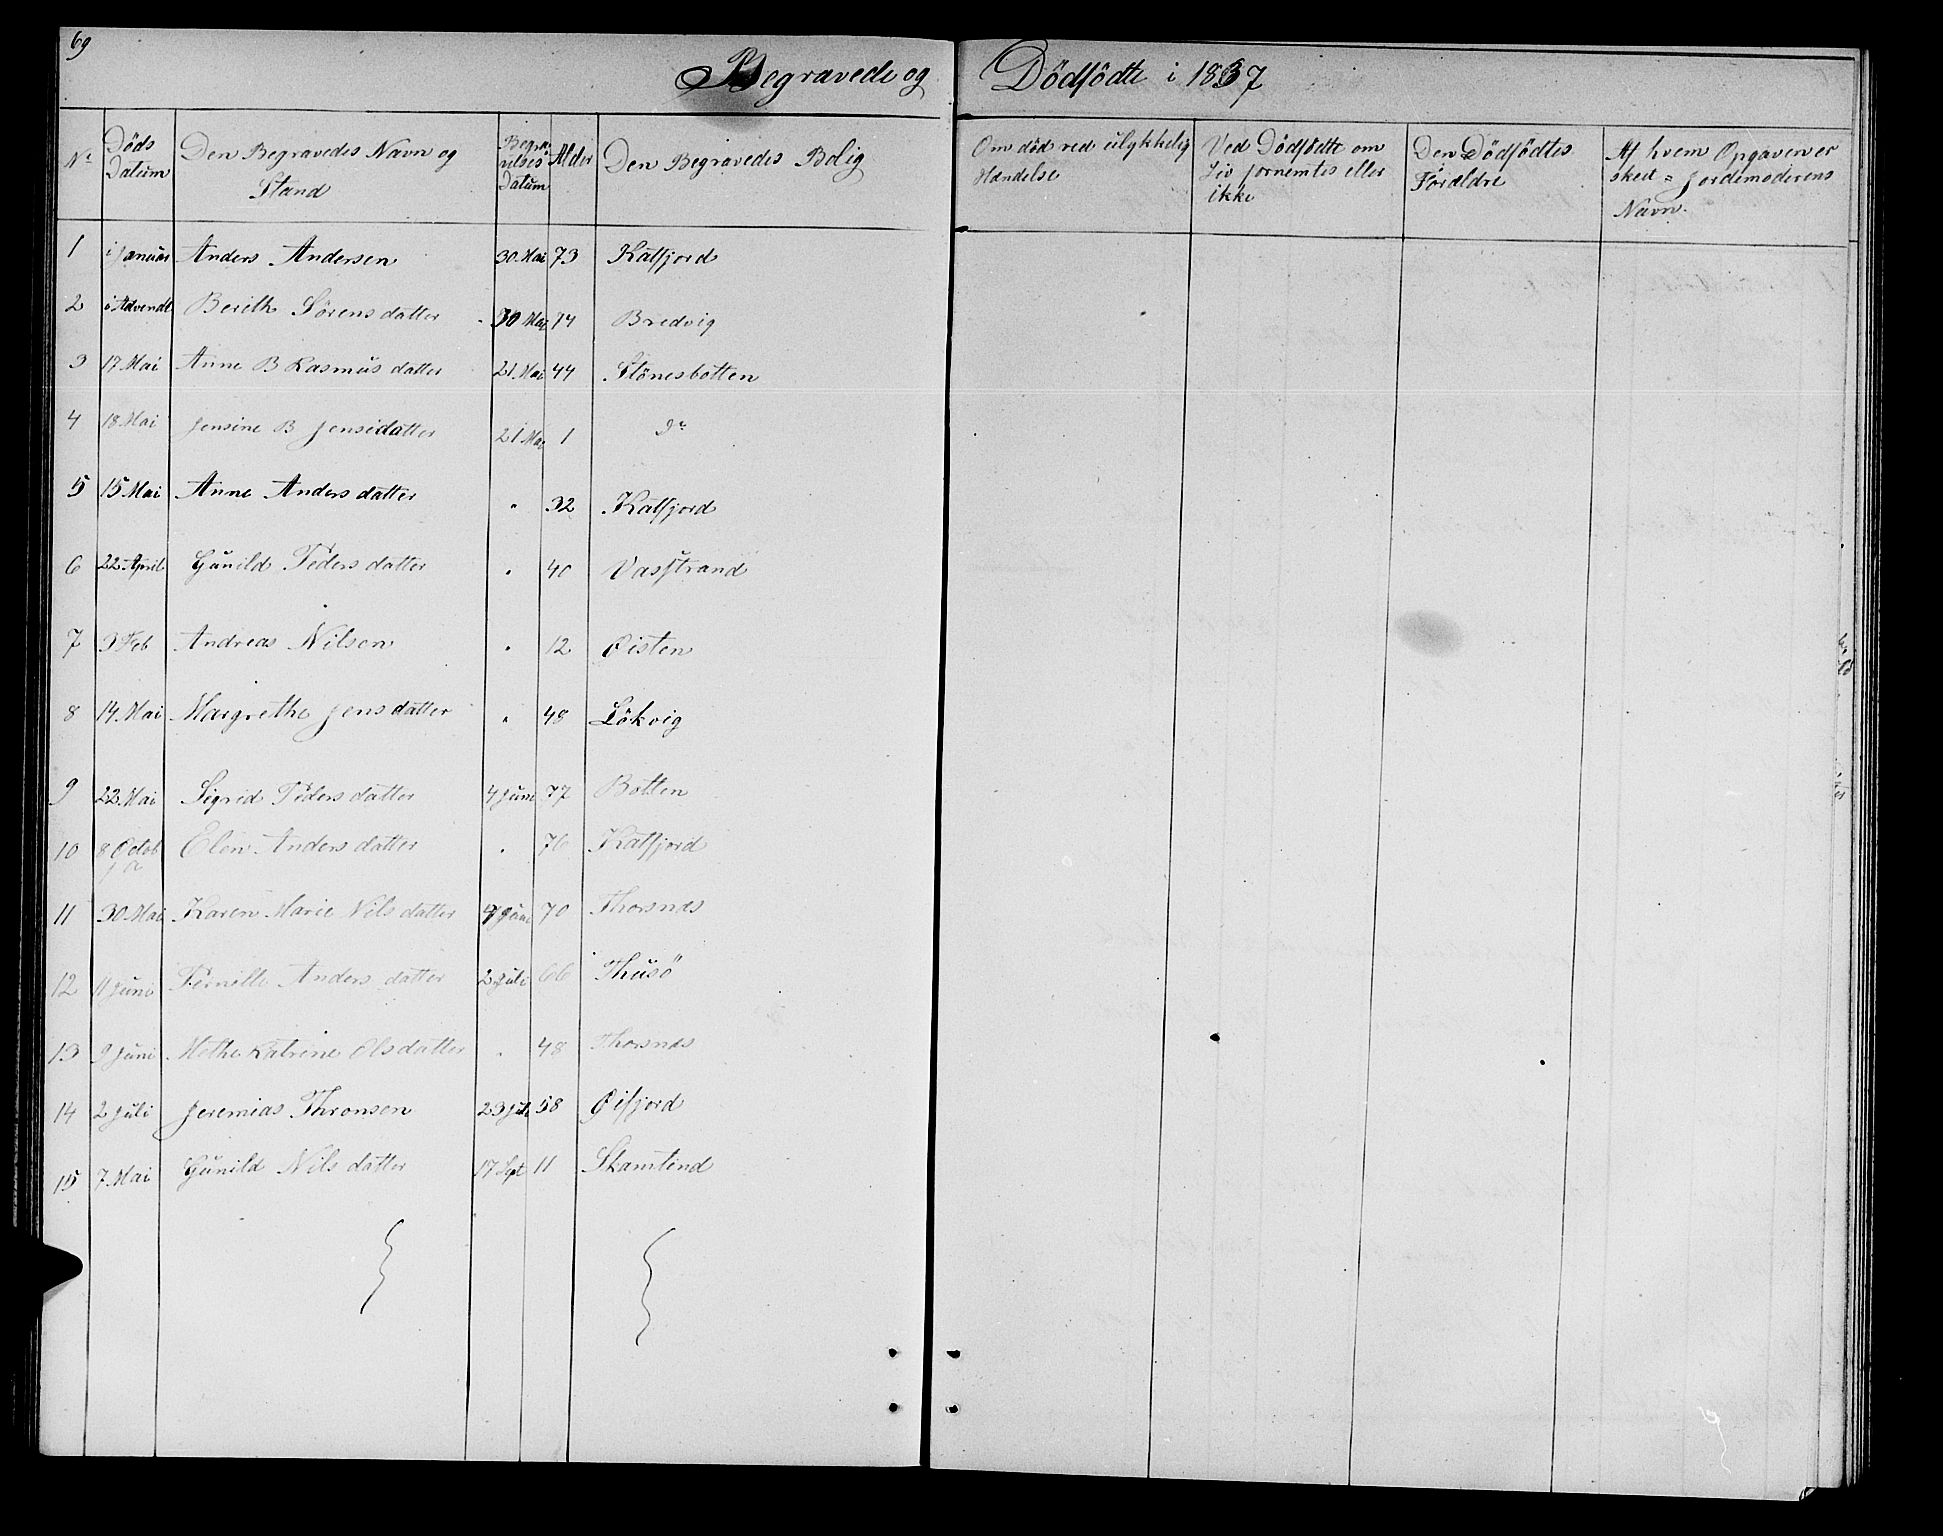 69
Begravede og Dödfödte i 1837
No
Döds Datum
Den Begravedes Navn og Stand
Begravelses Datum
Alder
Den Begravedes Bolig
Om död ved ulykkelig Hændelse
Ved Dödfödte om Liv fornemtes eller ikke
Den Dödfödtes Forældre
Af hvem Opgaven er skeet = Jordemoderens Navn.
1 i Januar Anders Andersen 30 Mai 73 Katfjord
2 i Advendt Berith Sörensdatter 30 Mai 74 Bredvig
3 17 Mai Anne B Rasmusdatter 21 Mai 44 Stönesbotten
4 18 Mai Jensine B Jensedatter 21 Mai 1 do
5 15 Mai Anne Andersdatter " 32 Katfjord
6 22 April Gunild Pedersdatter " 40 Vasstrand
7 3 Feb Andreas Nilsen " 12 Öisten
8 14 Mai Margrethe Jensdatter " 48 Lökvig
9 22 Mai Sigrid Pedersdatter 4 Juni 77 Botten
10 8 Octob Elen Andersdatter " 76 Katfjord
11 30 Mai Karen Marie Nilsdatter 4 Juni 70 Thorsnæs
12 11 Juni Pernille Andersdatter 2 Juli 66 Thusö
13 9 Juni Methe Katrine Olsdatter " 48 Thorsnæs
14 2 Juli Jeremias Thronsen 23 Juli 58 Öifjord
15 7 Mai Gunild Nilsdatter 17 Sept 11 Skamtind